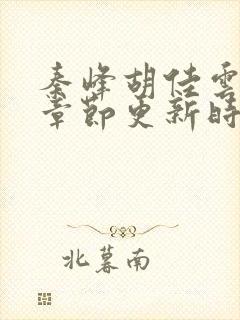 秦峰胡佳雲
章節更新時
北暮南